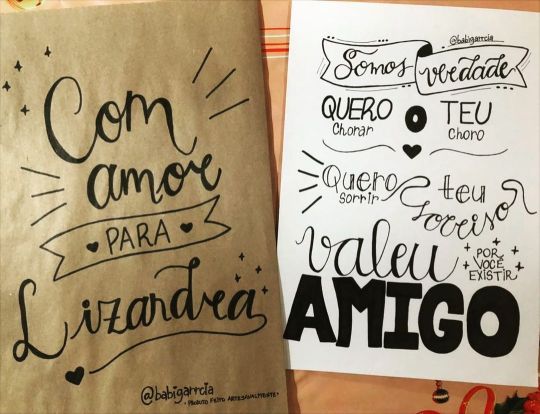 Com
amor
PARA
Lizandra
@babigarrcia
• PRODUTO FEITO ARTESANALMENTE •
@babigarrcia
Somos verdade
QUERO O TEU
Chorar Choro
Quero teu
Sorrir Sorriso
valeu
POR
VOCÊ
EXISTIR
AMIGO